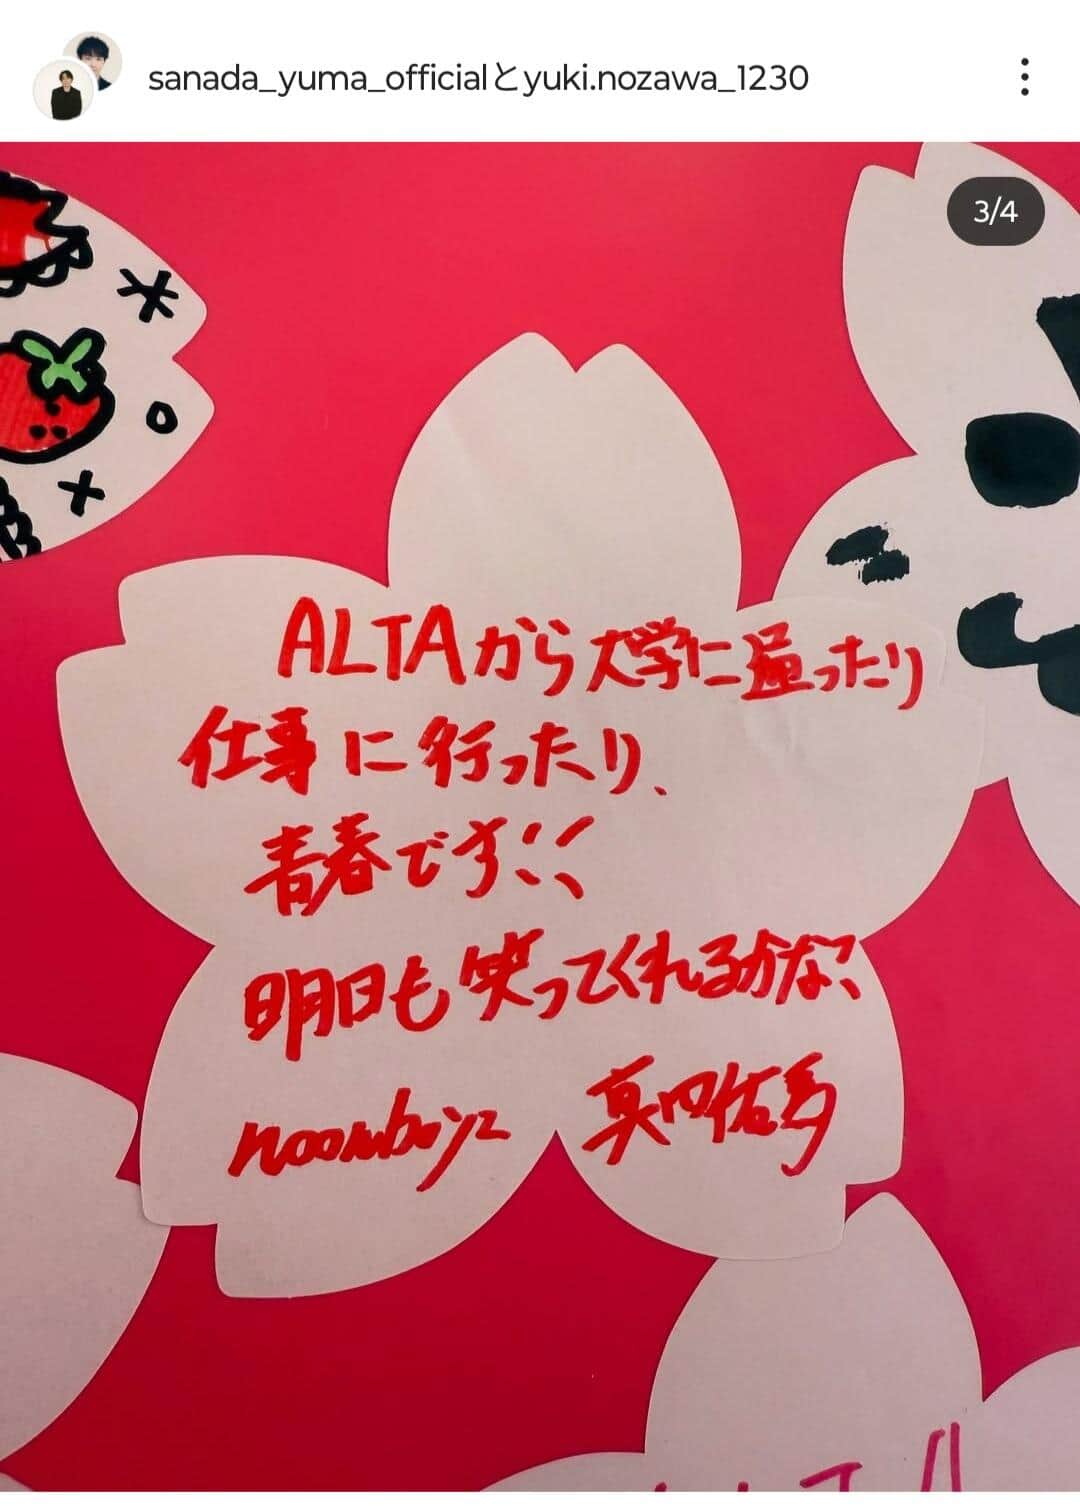 sanada_yuma_officialとyuki.nozawa_1230
3/4
ALTAから大学に通ったり
仕事に行ったり、
青春です!!
明日も笑ってくれるかな?
noonboyz 真田佑馬